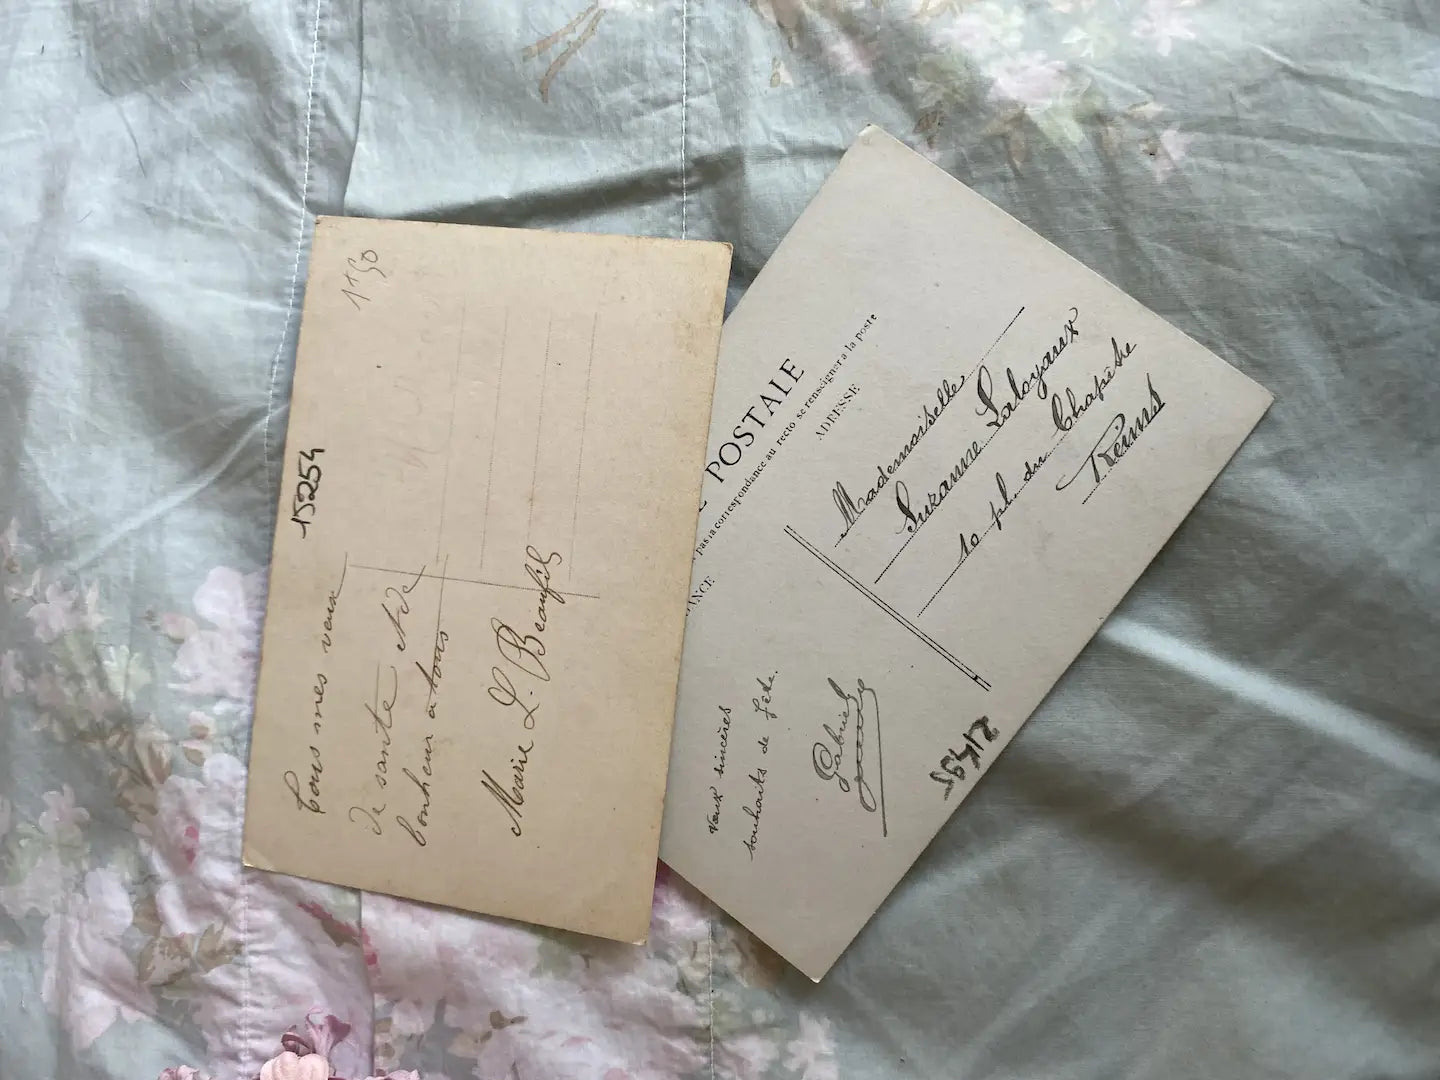 1f50
15254
Tous mes vœux
de santé et de
bonheur a tous
Marie L. Beaufils
POSTALE
pas la correspondance au recto se renseigner à la poste
ANCE
ADRESSE
Mademoiselle
Suzanne Laloyaux
10 pl. du Chapître
Reims
Vœux sincères
souhaits de fête.
Gabriel
21495